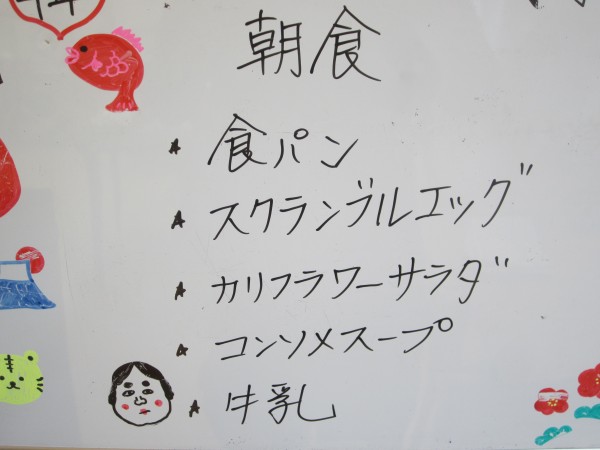 朝食
★ 食パン
★ スクランブルエッグ
★ カリフラワーサラダ
★ コンソメスープ
★ 牛乳